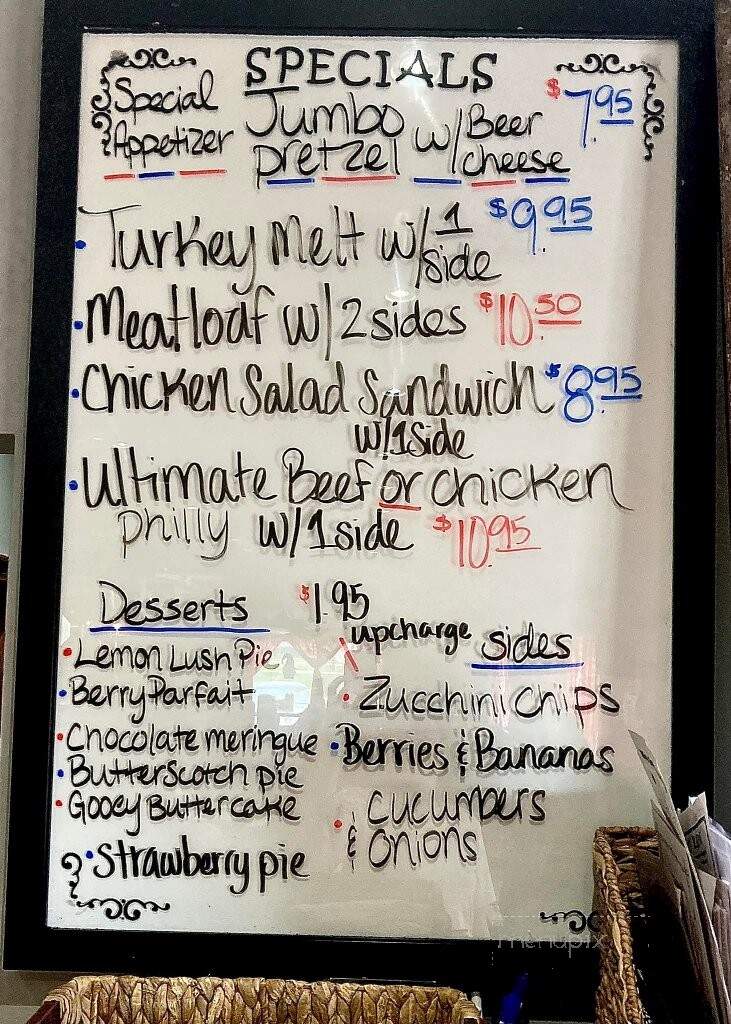 SPECIALS
Special Appetizer
Jumbo pretzel w/ Beer cheese $7.95
• Turkey Melt w/ 1 side $9.95
• Meatloaf w/ 2 sides $10.50
• Chicken Salad Sandwich $8.95
w/ 1 side
• Ultimate Beef or chicken
philly w/ 1 side $10.95
Desserts
• Lemon Lush Pie
• Berry Parfait
• Chocolate meringue
• Butterscotch pie
• Gooey Butter cake
• Strawberry pie
$1.95
upcharge
sides
• Zucchini chips
• Berries & Bananas
• cucumbers
& onions
menupix